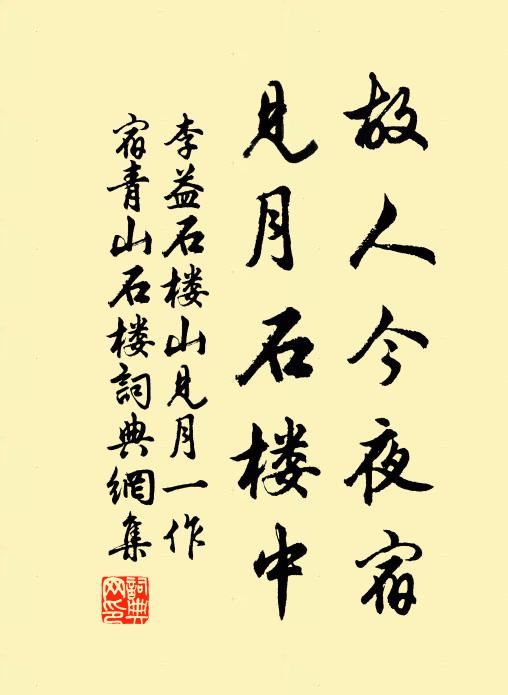 故人今夜宿
见月石楼中
李益石楼山见月一作
宿青山石楼詞典網集